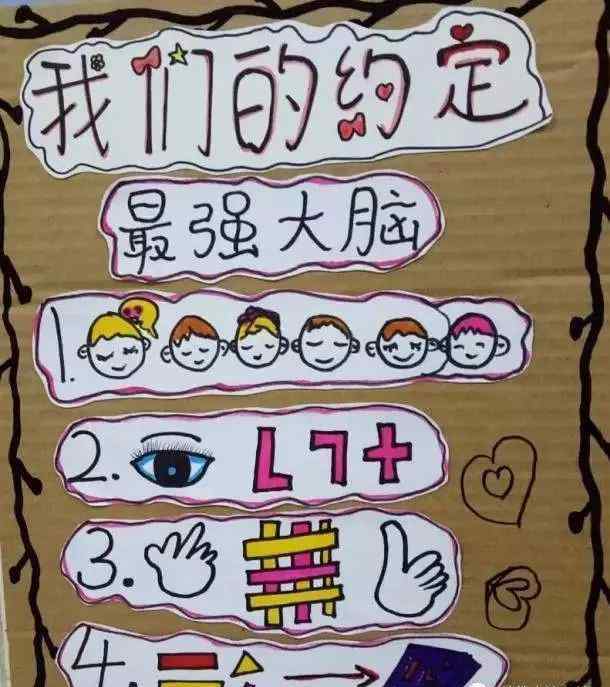 我们的约定
最强大脑
1.
2.
3.
4.